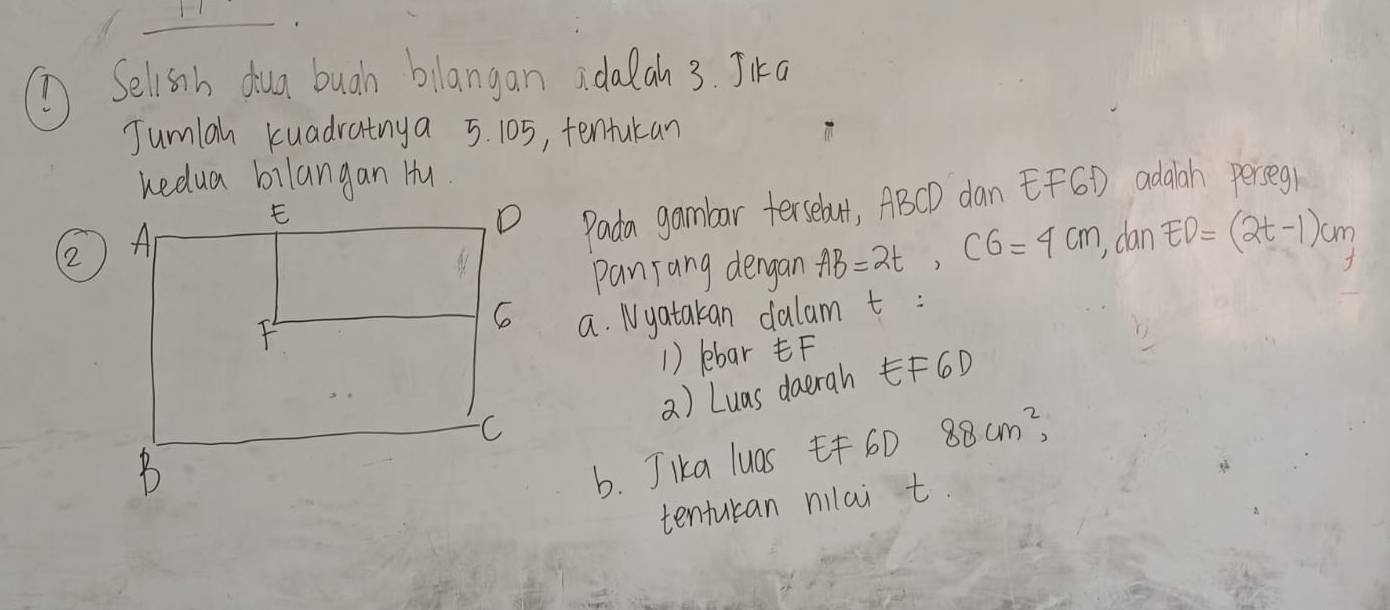 ① Selisih dua buah bilangan adalah 3. Jika
Jumlah kuadratnya 5.105, tentukan
kedua bilangan itu.
②
A E D
F G
B C
Pada gambar tersebut, ABCD dan EFGD adalah persegi
panjang dengan AB = 2t, CG = 4 cm, dan ED = (2t-1)cm,
a. Nyatakan dalam t :
1) lebar EF
2) Luas daerah EFGD
b. Jika luas EFGD 88 cm²,
tentukan nilai t.